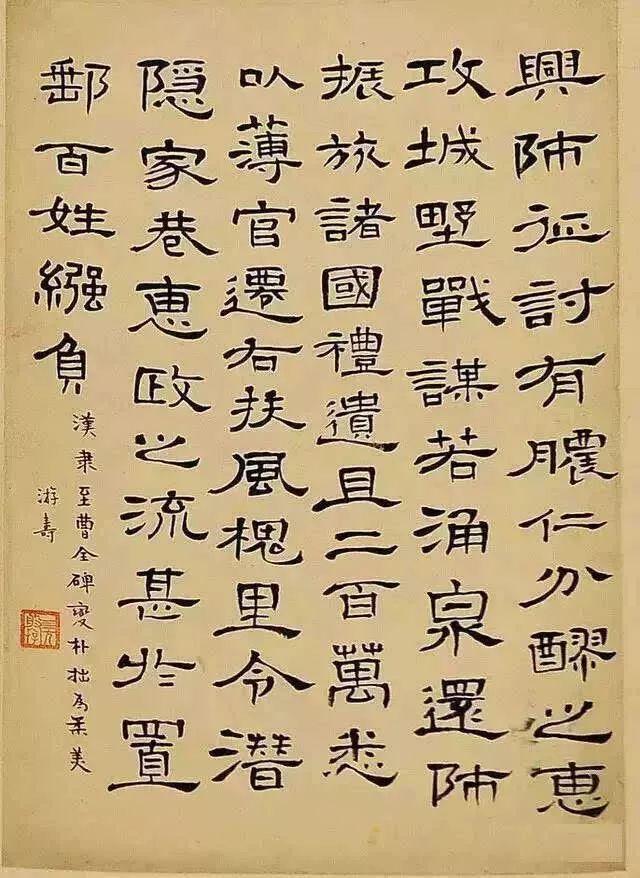 興師征討有膿仁分醪之惠
攻城墅戰謀若涌泉還師
振旅諸國禮遺且二百萬悉
以薄官遷右扶風槐里令潛
隐家巷惠政之流甚於置
郵百姓繦負
漢隶至曹全碑變朴拙為柔美
游壽